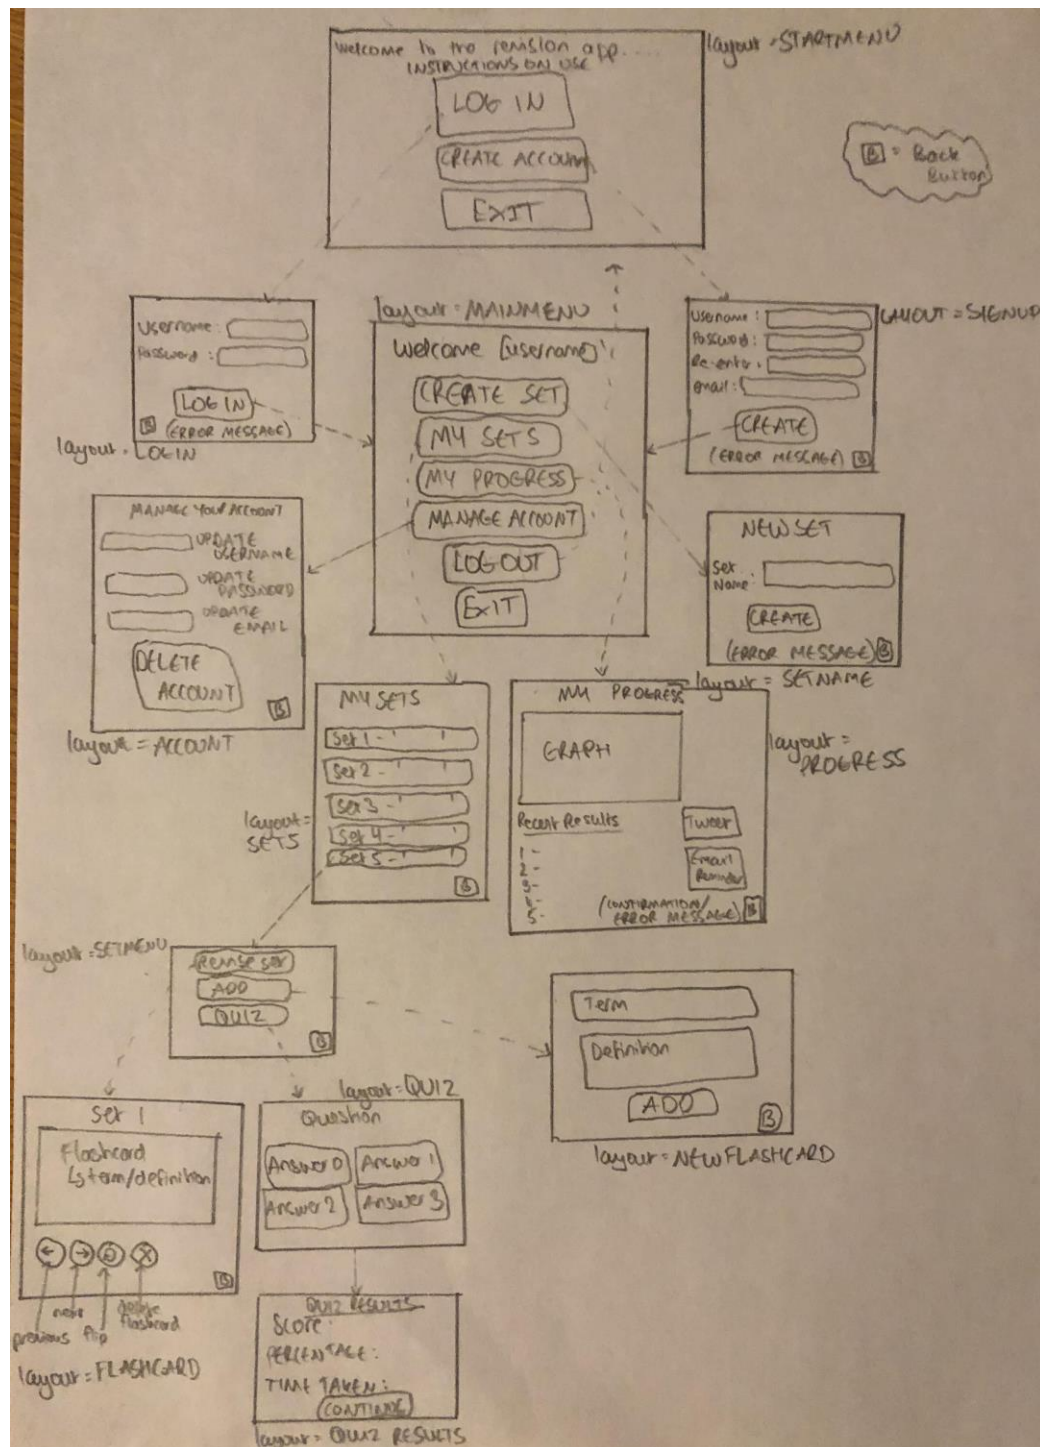 Welcome to the revision app.....
INSTRUCTIONS ON USE
LOG IN
CREATE ACCOUNT
EXIT
layout = STARTMENU
B = Back
Button
Username :
Password :
LOG IN
B (ERROR MESSAGE)
layout = LOGIN
layout = MAINMENU
Welcome [username]!
CREATE SET
MY SETS
MY PROGRESS
MANAGE ACCOUNT
LOG OUT
EXIT
Username :
Password :
Re-enter :
email :
CREATE
(ERROR MESSAGE) B
LAYOUT = SIGNUP
MANAGE YOUR ACCOUNT
UPDATE
USERNAME
UPDATE
PASSWORD
UPDATE
EMAIL
DELETE
ACCOUNT
B
layout = ACCOUNT
NEW SET
Set
Name :
CREATE
(ERROR MESSAGE) B
layout = SETNAME
MY SETS
Set 1 - ' '
Set 2 - ' '
Set 3 - ' '
Set 4 - ' '
Set 5 - ' '
B
layout =
SETS
MY PROGRESS
GRAPH
Recent Results
1 -
2 -
3 -
4 -
5 -
Tweet
Email
Reminder
(CONFIRMATION/
ERROR MESSAGE) B
layout =
PROGRESS
layout = SETMENU
Revise set
ADD
QUIZ
B
Term
Definition
ADD
B
layout = NEWFLASHCARD
Set 1
Flashcard
↳ term/definition
B
previous
next
flip
delete
flashcard
layout = FLASHCARD
layout = QUIZ
Question
Answer 0 Answer 1
Answer 2 Answer 3
QUIZ RESULTS
SCORE :
PERCENTAGE :
TIME TAKEN :
CONTINUE
layout = QUIZ RESULTS